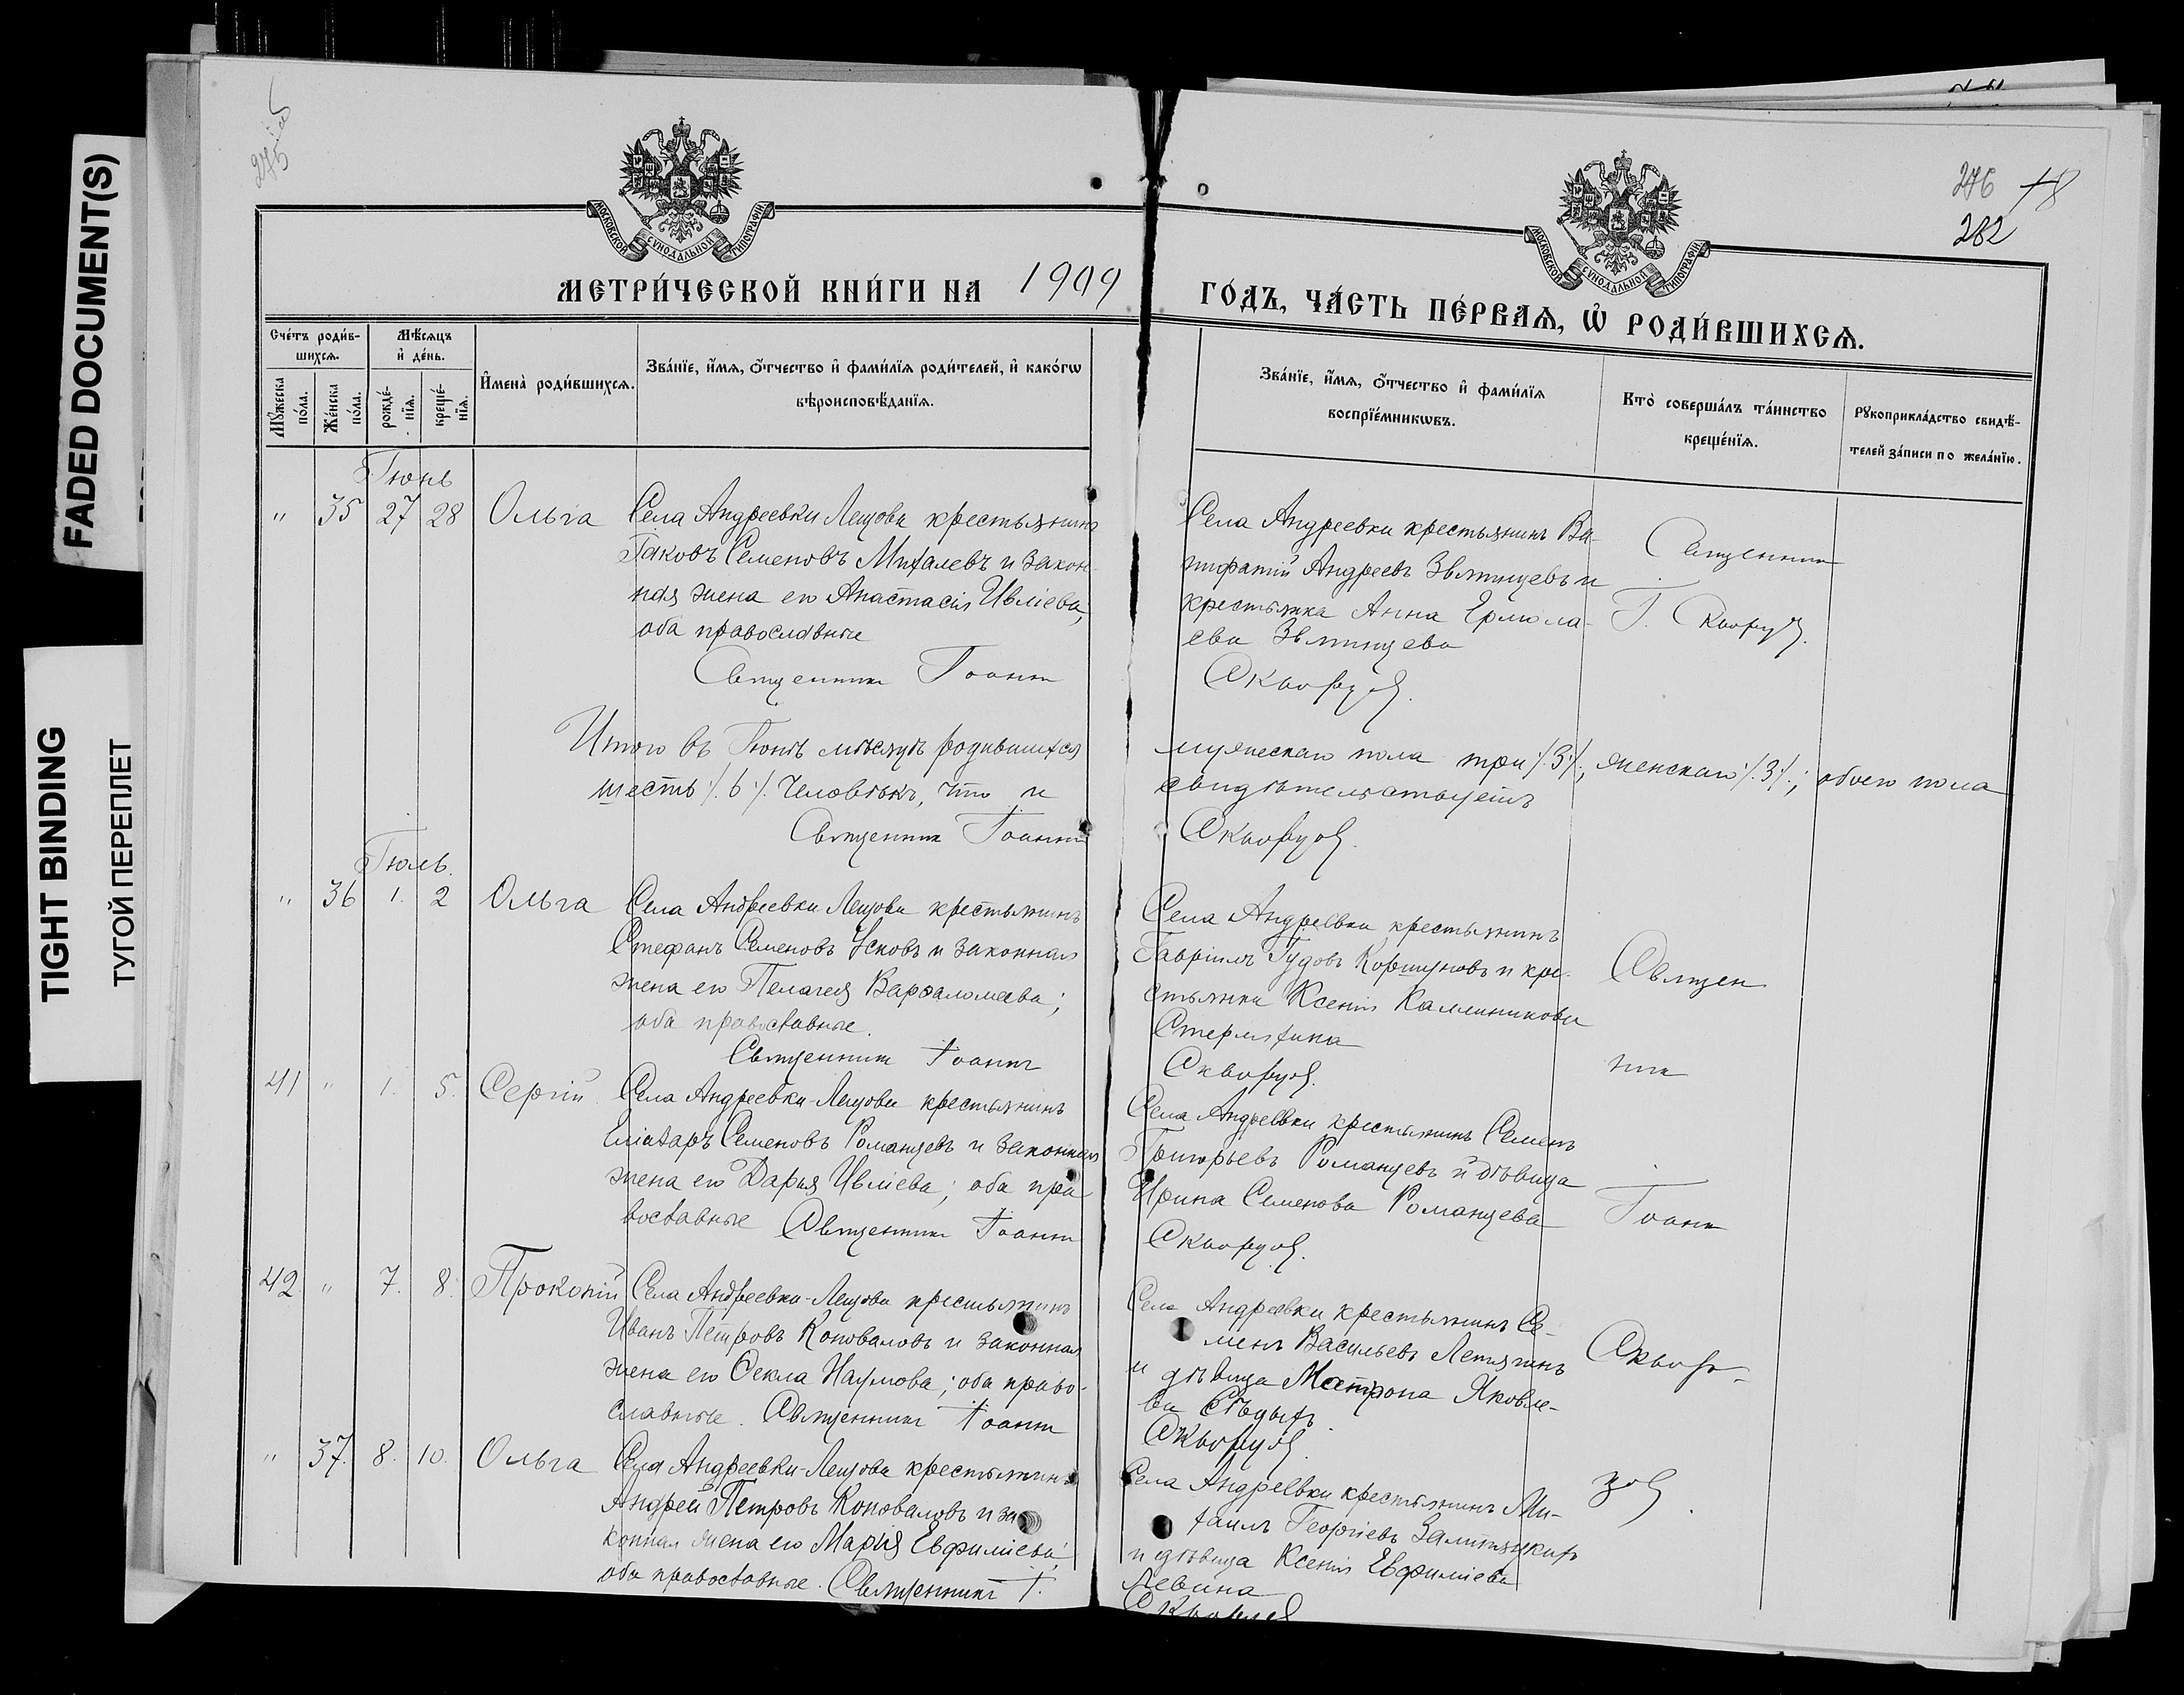 FADED DOCUMENT(S)
TIGHT BINDING
ТУГОЙ ПЕРЕПЛЕТ
275
276 78
282
МОСКОВСКОЙ СѴНОДАЛЬНОЙ ТИПОГРАФІИ
МОСКОВСКОЙ СѴНОДАЛЬНОЙ ТИПОГРАФІИ
МЕТРИ́ЧЕСКОЙ КНИ́ГИ НА 1909
ГО́ДЪ, ЧА́СТЬ ПЕ́РВАѦ, Ѡ҆ РОДИ́ВШИХСѦ.
Сче́тъ роди́в-
шихсѧ.
Мꙋ́жеска по́ла.
Же́нска по́ла.
Мѣ́сѧцъ
и҆ де́нь.
рожде́-
нїѧ.
креще́-
нїѧ.
И҆мена̀ роди́вшихсѧ.
Зва́нїе, и҆́мѧ, ѻ҆́тчество и҆ фами́лїѧ роди́телей, и҆ како́гѡ
вѣроисповѣ́данїѧ.
Зва́нїе, и҆́мѧ, ѻ҆́тчество и҆ фами́лїѧ
воспрїе́мникѡвъ.
Кто̀ соверша́лъ та́инство
креще́нїѧ.
Рꙋкоприкла́дство свидѣ́-
телей за́писи по жела́нїю.
Іюнь
" 35 27 28 Ольга
Села Андреевки Лещова крестьянинъ
Іаковъ Семеновъ Михалевъ и закон-
ная жена его Анастасія Ивліева,
оба православные
Священникъ Іоаннъ
Села Андреевки крестьянинъ Во-
нифатій Андреевъ Звягинцевъ и
крестьянка Анна Ермола-
ева Звягинцева
Скворцов.
Священникъ
І. Скворцов.
Итого въ Іюнѣ мѣсяцѣ родившихся
мужескаго пола три /.3/., женскаго /.3/.; обоего пола
шесть /.6/. человѣкъ, что и
свидѣтельствуемъ
Священникъ Іоаннъ
Скворцов.
Іюль.
" 36 1. 2 Ольга
Села Андреевки Лещова крестьянинъ
Стефанъ Семеновъ Усковъ и законная
жена его Пелагея Варѳаломеева;
оба православные.
Священникъ Іоаннъ
Села Андреевки крестьянинъ
Гавріилъ Гудовъ Коршуновъ и кре-
стьянка Ксенія Каллиникова
Скворцов.
Священ
никъ
41 " 1. 5. Сергій
Села Андреевки-Лещова крестьянинъ
Семеновъ Романцевъ и законная
жена его Дарья Ивліева; оба пра-
вославные Священникъ Іоаннъ
Села Андреевки крестьянинъ Семенъ
Григорьевъ Романцевъ и дѣвица
Ирина Семенова Романцева
Скворцов.
Іоаннъ
42 " 7. 8. Прокопій
Села Андреевки-Лещова крестьянинъ
Иванъ Петровъ Коноваловъ и законная
жена его Ѳекла Наумова; оба право-
славные. Священникъ Іоаннъ
Села Андреевки крестьянинъ Се-
менъ Васильевъ Лепягинъ
и дѣвица Матрона Яковле-
ва Сѣдыхъ
Скворцов.
Сквор-
" 37. 8. 10. Ольга
Села Андреевки-Лещова крестьянинъ
Андрей Петровъ Коноваловъ и за-
конная жена его Марія Евфиміева;
оба православные. Священникъ І.
Села Андреевки крестьянинъ Ми-
хаилъ Георгіевъ
и дѣвица Ксенія Евфиміева
Левина
Скворцов
цов.